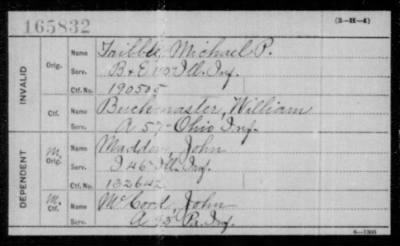 165832
(3-H-4)
INVALID
Orig.
Name Tribble, Michael P.
Serv. B & E 115 Ill. Inf.
Ctf. No. 190505
Ctf.
Name Buckmaster, William
Serv. A 57 Ohio Inf.
DEPENDENT
M. Orig.
Name Madden, John
Serv. I 46 Ill. Inf.
Ctf. No. 132642
M. Ctf.
Name McCord, John
Serv. Pa. Inf.